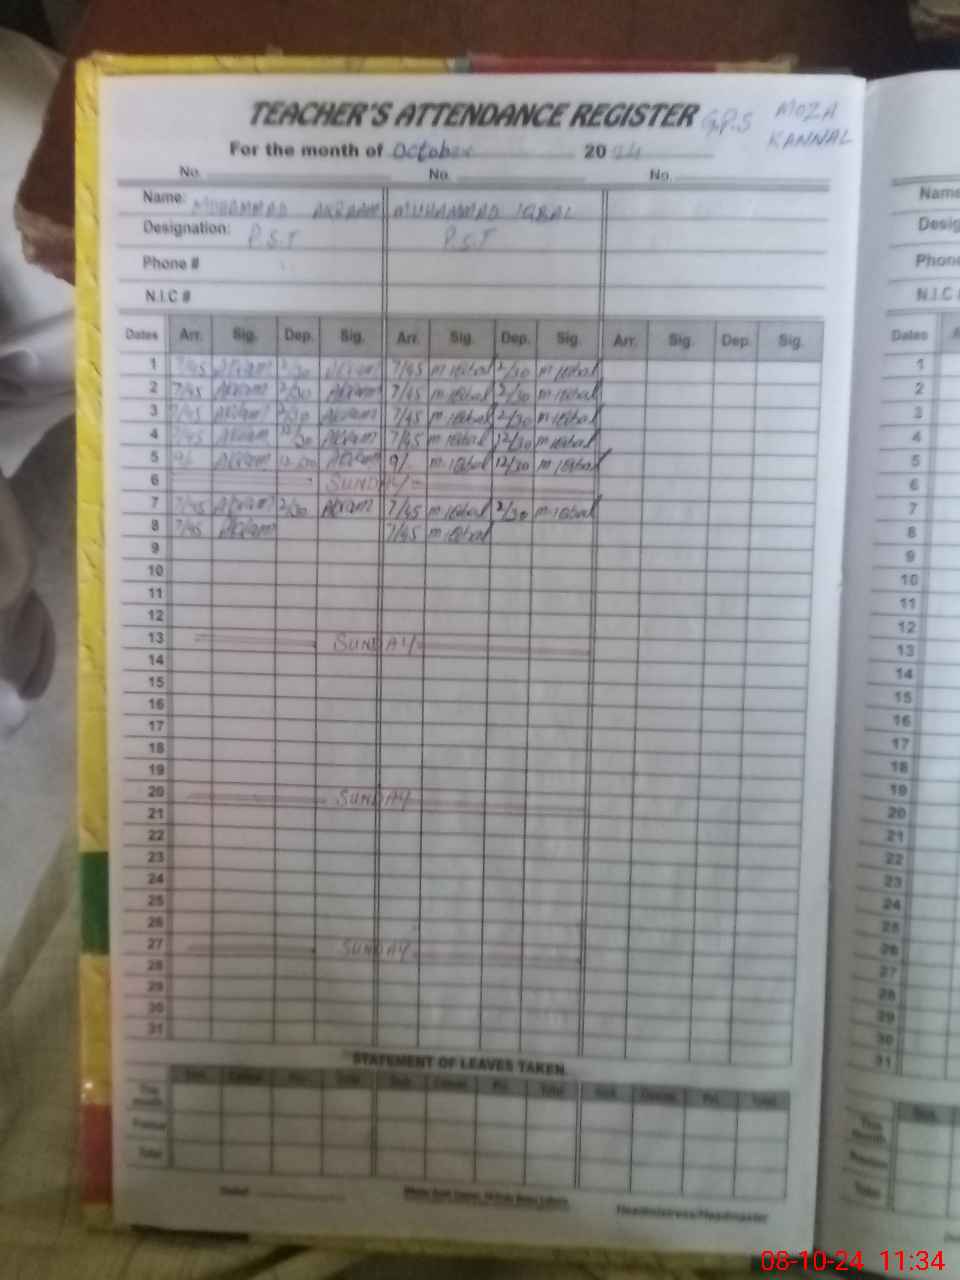 TEACHER'S ATTENDANCE REGISTER G.P.S MOZA KANNAL
For the month of October 2024
No. No. No.
Name: MUHAMMAD AKRAM MUHAMMAD IQBAL
Designation: P.S.T P.S.T
Phone #
N.I.C #
Dates Arr. Sig. Dep. Sig. Arr. Sig. Dep. Sig. Arr. Sig. Dep. Sig.
1 7/45 Akram 2/30 Akram 7/45 m iqbal 2/30 m iqbal
2 7/45 Akram 2/30 Akram 7/45 m iqbal 2/30 m iqbal
3 7/45 Akram 2/30 Akram 7/45 m iqbal 2/30 m iqbal
4 7/45 Akram 12/30 Akram 7/45 m iqbal 12/30 m iqbal
5 9/ Akram 12/30 Akram 9/ m iqbal 12/30 m iqbal
6 SUNDAY
7 7/45 Akram 2/30 Akram 7/45 m iqbal 2/30 m iqbal
8 7/45 Akram 7/45 m iqbal
9
10
11
12
13 SUNDAY
14
15
16
17
18
19
20 SUNDAY
21
22
23
24
25
26
27 SUNDAY
28
29
30
31
STATEMENT OF LEAVES TAKEN
This month
Total
Headmistress/Headmaster
Name
Phone
N.I.C
Dates
1
2
3
4
5
6
7
8
9
10
11
12
13
14
15
16
17
18
19
20
21
22
23
24
25
26
27
28
29
30
31
This month
Total
08-10-24 11:34